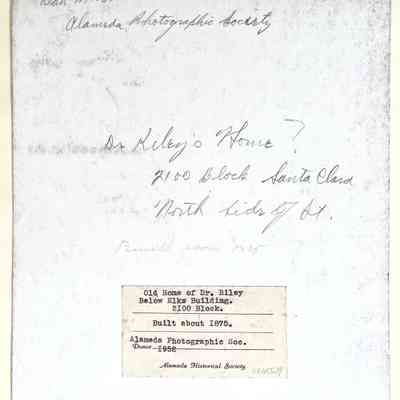 Alameda Photographic Society
Dr Riley's Home ?
2100 Block Santa Clara
North Side of St.
Old Home of Dr. Riley
Below Elks Building.
2100 Block.
Built about 1875.
Alameda Photographic Soc.
Donor 1952
Alameda Historical Society